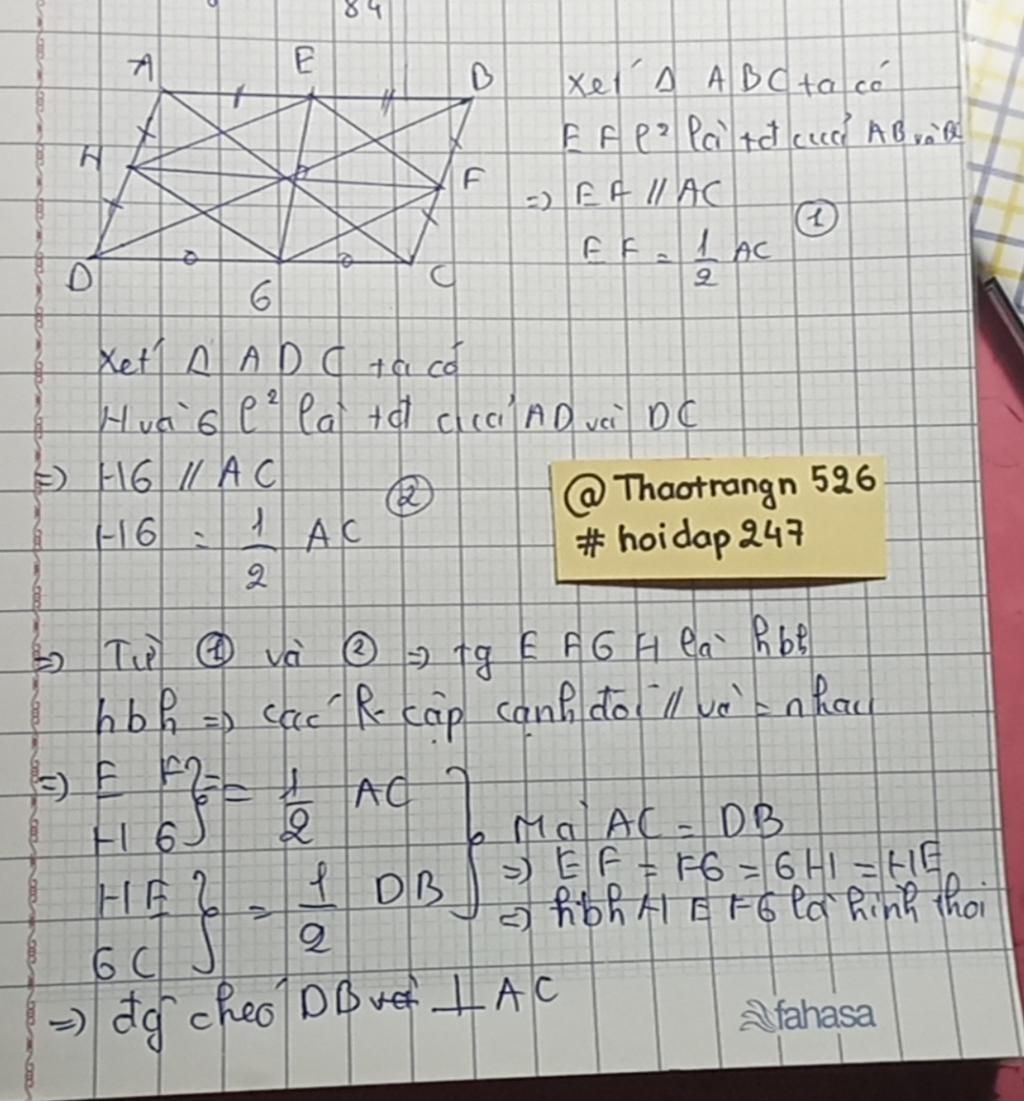 84
A E B
H F
D 6 C
Xét Δ ABC ta có
E F l² là tđ của AB và BC
=> EF // AC
EF = 1/2 AC ①
Xét Δ ADC ta có
H và G l² là tđ của AD và DC
=> HG // AC
HG = 1/2 AC ②
@Thaotrangn 526
# hoidap247
=> Từ ① và ② => tg E F G H là hbh
hbh => các cặp cạnh đối // và = nhau
=> E F
H G } = 1/2 AC
HE
GC } = 1/2 DB
} Mà AC = DB
=> EF = FG = GH = HE
=> hbh H E F G là hình thoi
=> đg chéo DB ⊥ AC
fahasa